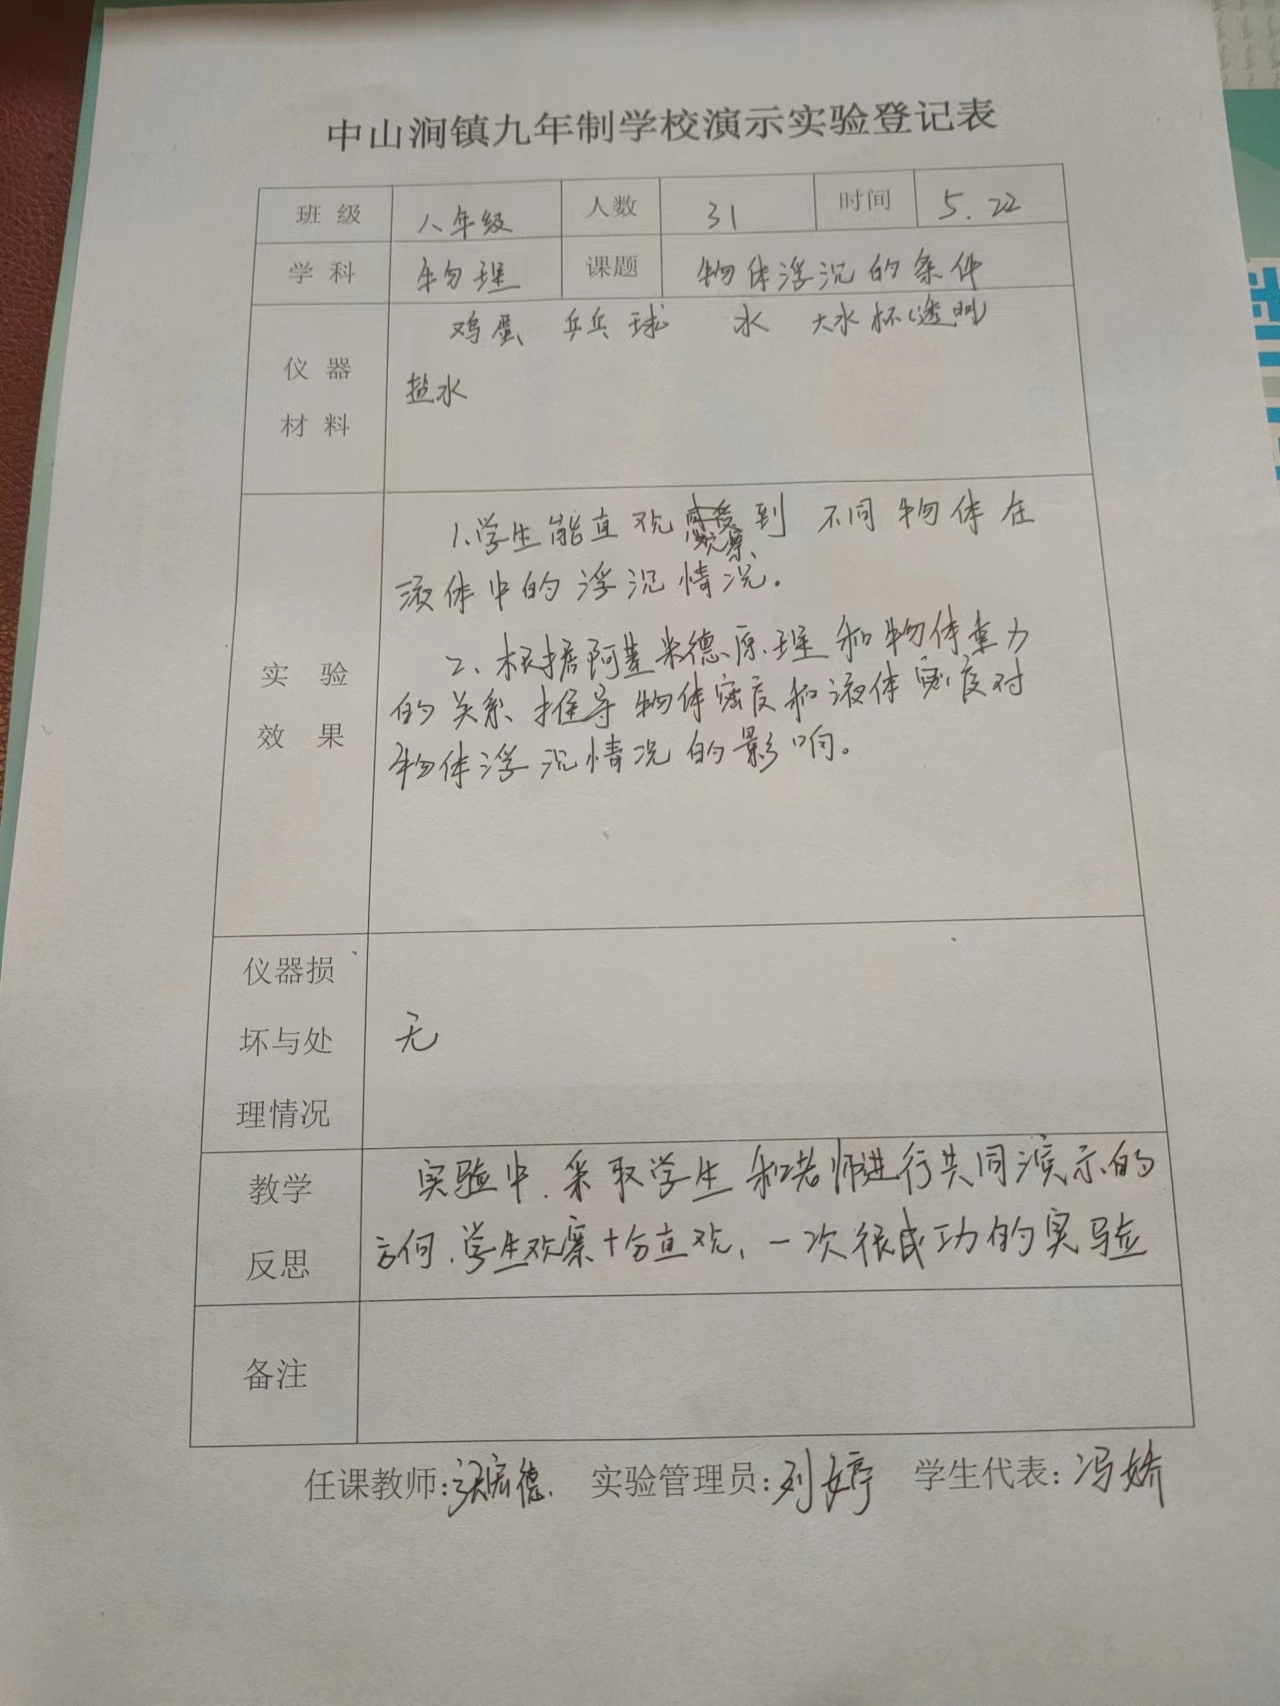 中山涧镇九年制学校演示实验登记表
班级 八年级 人数 31 时间 5.22
学科 物理 课题 物体浮沉的条件
仪器材料
鸡蛋 乒乓球 水 大水杯(透明)
盐水
实验效果
1.学生能直观观察到 不同物体在
液体中的浮沉情况。
2、根据阿基米德原理和物体重力
的关系推导物体密度和液体密度对
物体浮沉情况的影响。
仪器损坏与处理情况
无
教学反思
实验中.采取学生和老师进行共同演示的
方何.学生观察十分直观,一次很成功的实验
备注
任课教师: 实验管理员:刘婷 学生代表:冯娇